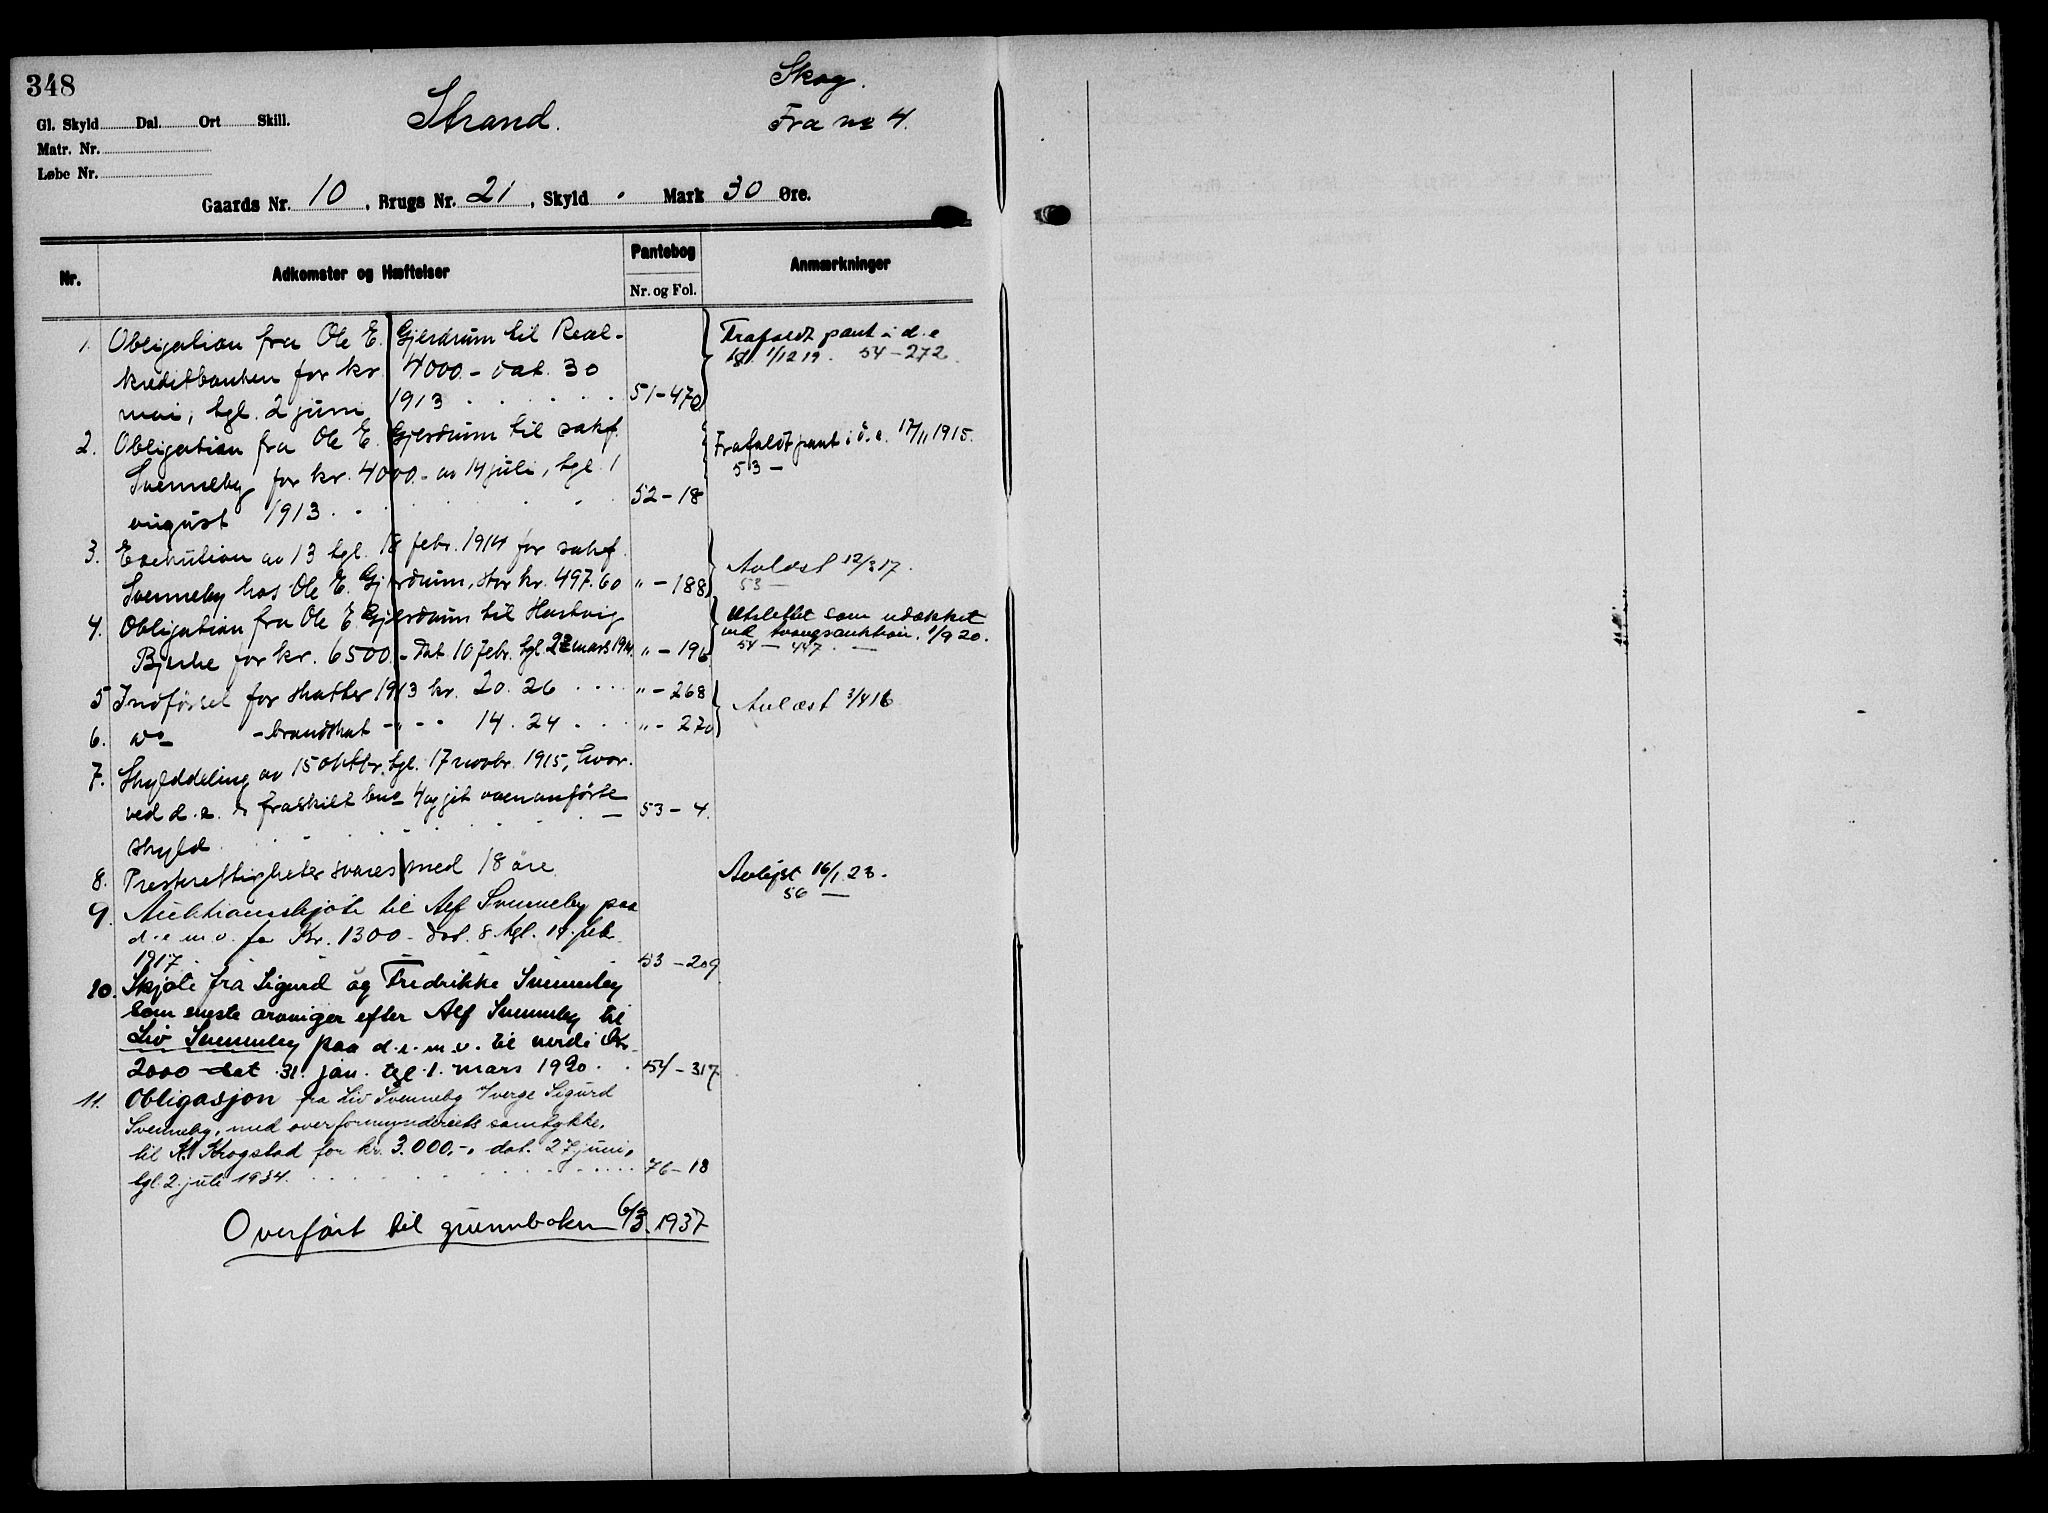 348
Skog.
Strand.
Fra no 4.
Gl. Skyld Dal. Ort Skill.
Matr. Nr.
Løbe Nr.
Gaards Nr. 10, Brugs Nr. 21, Skyld · Mark 30 Øre.
Nr. Adkomster og Hæftelser Pantebog Nr. og Fol. Anmærkninger
1. Obligation fra Ole E. Gjerdrum til Real-
kreditbanken for kr. 4000.- dat. 30
mai, tgl. 2 juni 1913 51-470
Frafaldt pant i d.e
tgl. 1/12 19. 54-272.
2. Obligation fra Ole E. Gjerdrum til sakf.
Svenneby for kr. 4000.- av 14 juli, tgl. 1
august 1913 52-18
Frafaldt pant i d.e. 17/11 1915.
53 -
3. Exekution av 13 tgl. 18 febr. 1914 for sakf.
Svenneby hos Ole E. Gjerdrum, stor kr. 497.60 " - 188
Avlæst 12/3 17.
53 -
4. Obligation fra Ole E Gjerdrum til Hartvig
Bjerke for kr. 6500.- dat 10 febr. tgl. 22 mars 1914. " - 196
Utslettet som udækket
ved tvangsauktion. 1/9 20.
54 - 447. -
5 Indførsel for skatter 1913 kr. 20.26 " - 268
6. do - brandskat - " - - 14.24 " - 270
Avlæst 3/4 16
7. Skylddeling av 15 oktbr. tgl. 17 novbr. 1915, hvor-
ved d.e. er fraskilt bno 4 og git ovenanførte
skyld 53-4.
8. Presterettigheter svares med 18 øre.
Avløst 16/1 23.
56 -
9. Auktionsskjøte til Alf Svenneby paa
d.e.m.v. for Kr. 1300 - dat. 8 tgl. 14. feb.
1917. 53-209
10. Skjøte fra Sigurd og Fredrikke Svenneby
som eneste arvinger efter Alf Svenneby til
Liv Svenneby paa d.e.m.v. til verdi Kr.
2000 dat 31. jan. tgl. 1. mars 1920. 54-317
11. Obligasjon fra Liv Svenneby v/verge Sigurd
Svenneby, med overformynderiets samtykke,
til K. Krogstad for kr. 3.000,-, dat. 27 juni,
tgl. 2. juli 1934. 76-18
Overført til grunnboken 6/3. 1937